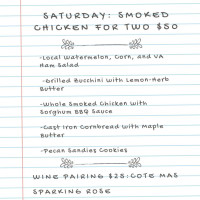 SATURDAY: SMOKED
CHICKEN FOR TWO $50
-Local Watermelon, Corn, and VA
Ham Salad
-Grilled Bucchini with Lemon-Herb
Butter
-Whole Smoked Chicken with
Sorghum BBQ Sauce
-Cast Iron Cornbread with Maple
Butter
-Pecan Sandies Cookies
WINE PAIRING $28: COTE MAS
SPARKING ROSE